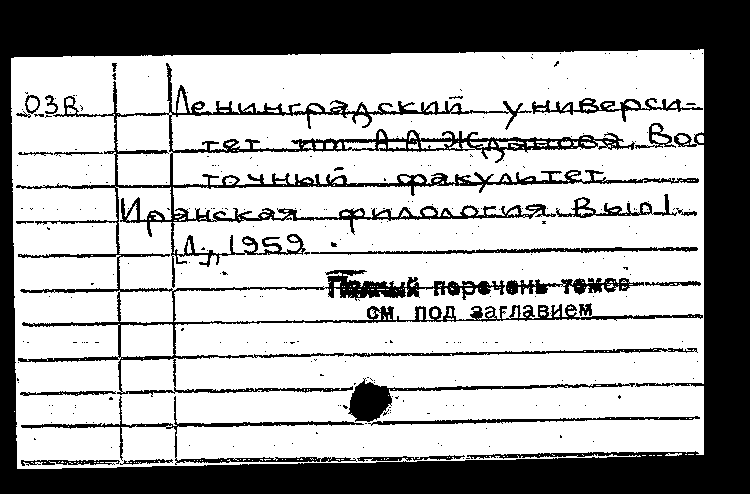 ОЗВ. Ленинградский универси-
тет им. А.А. Жданова. Вос
точный факультет
Иранская филология. Вып 1
[Л.], 1959.
Полный перечень томов
см. под заглавием